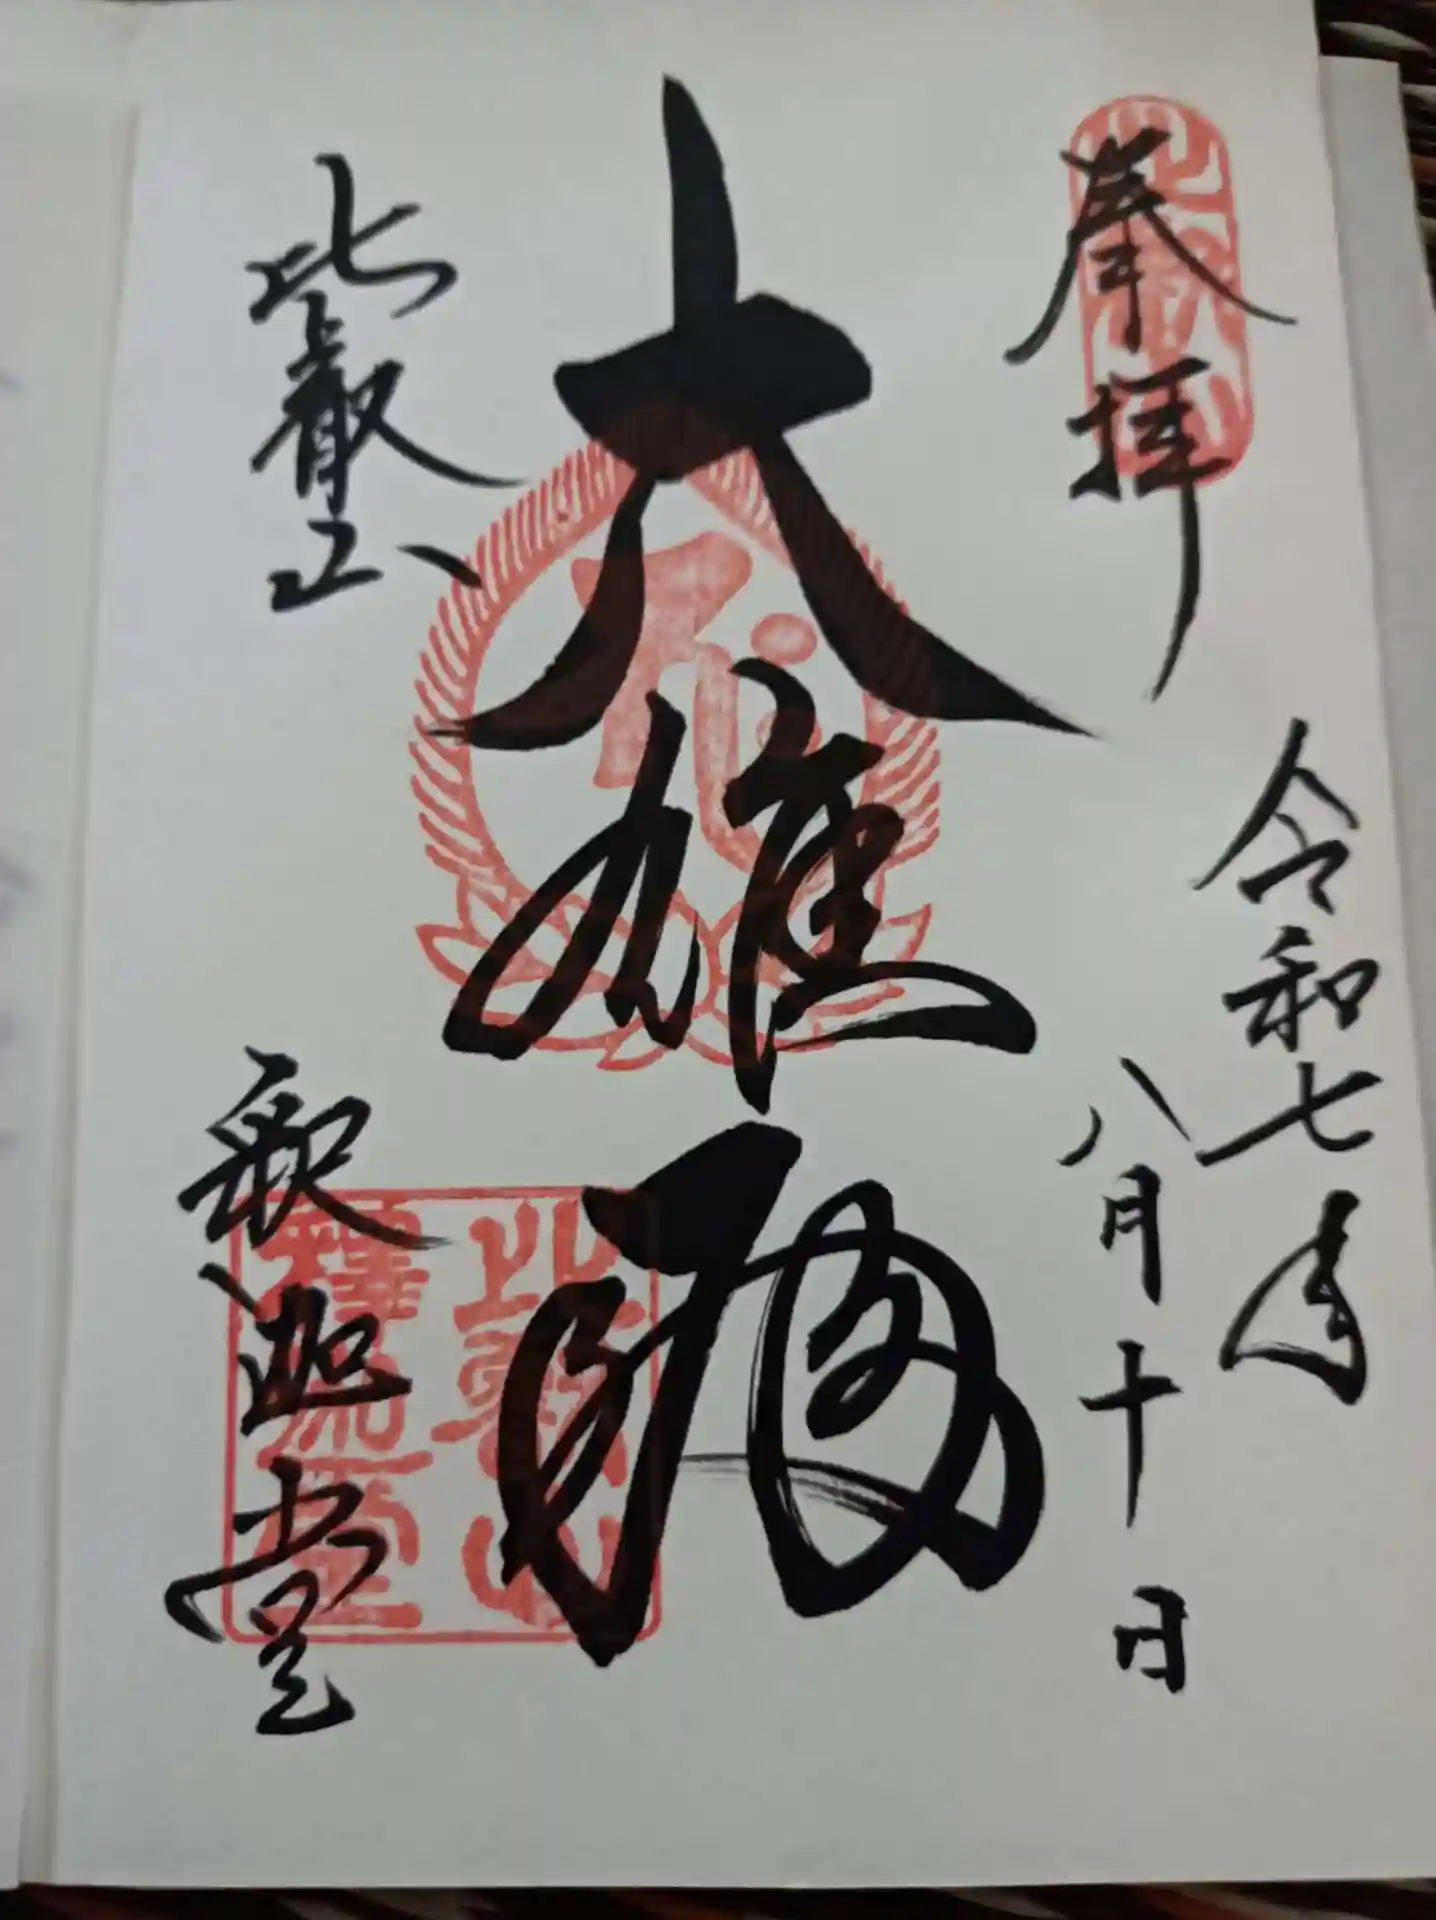 奉拝
令和七年
八月十日
大雄殿
比叡山
釈迦堂
比叡山
釋迦堂